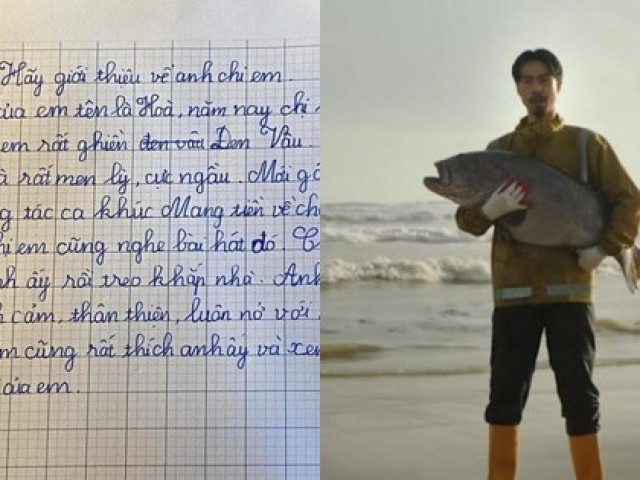 Hãy giới thiệu về anh chị em.
của em tên là Hoà, năm nay chị
em rất ghiền đen vâu Đen Vâu.
rất men lỳ, cực ngầu. Mới
g tác ca khúc Mang tiền về ch
em cũng nghe bài hát đó.
h ấy rồi treo khắp nhà. Anh
cảm, thân thiện, luân nở với
m cũng rất thích anh ấy và xem
của em.